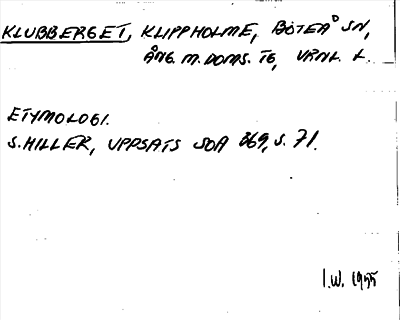 KLUBBERGET, KLIPPHOLME, BOTEÅ SN,
ÅNG. M. DOMS. TG, VRNL. L.
ETYMOLOGI.
S. HILLER, UPPSATS SOA 369, S. 71.
I.W. 1955